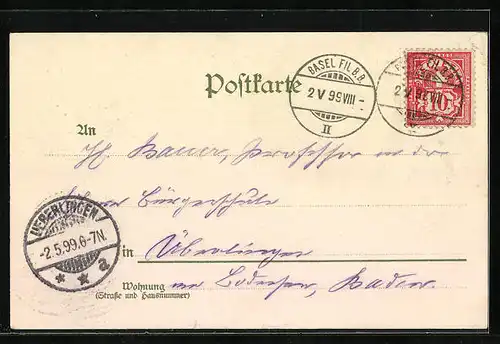 Postkarte
BASEL FIL.B.B.
2 V 99 VIII -
II
10
An
Hh. Bauer, Professor an der
höhern Bürgerschule
UEBERLINGEN
-2.5.99.6-7N.
* * a
in Überlingen
Wohnung am Bodensee, Baden
(Straße und Hausnummer)